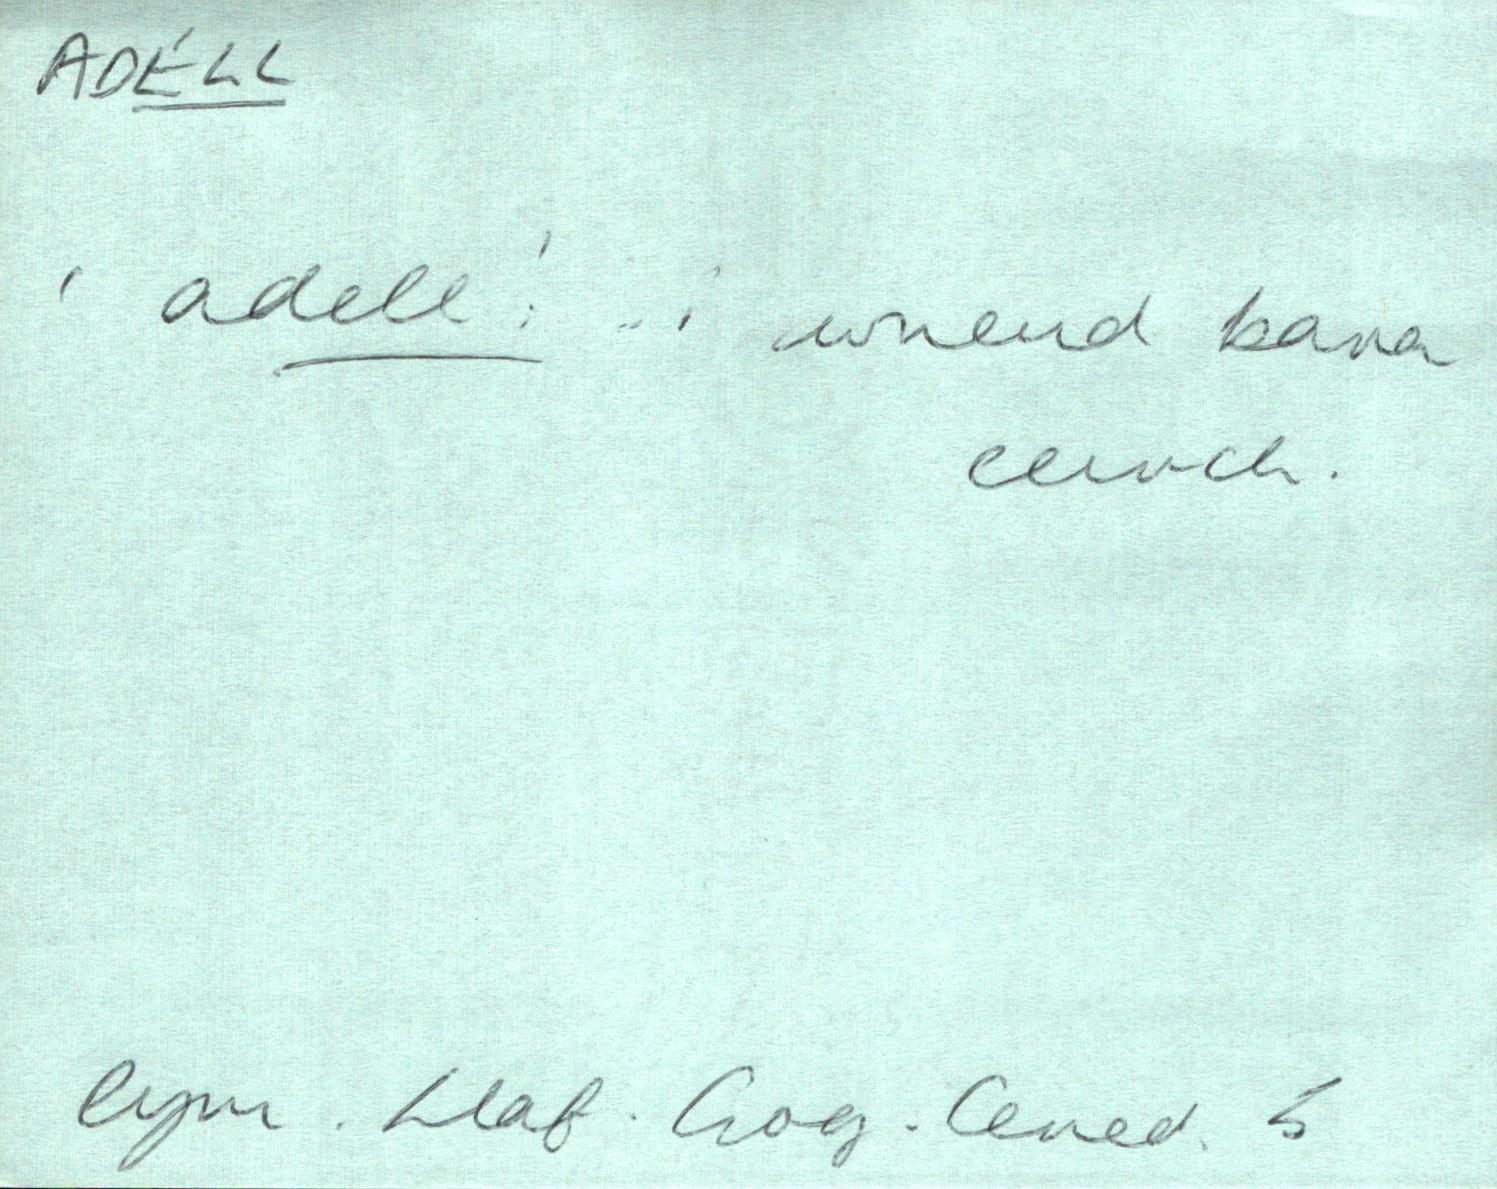 ADÉLL
' adell ' : .. i wneud bara
ceirch.
Cym. Llaf. Gog. Cered. 5